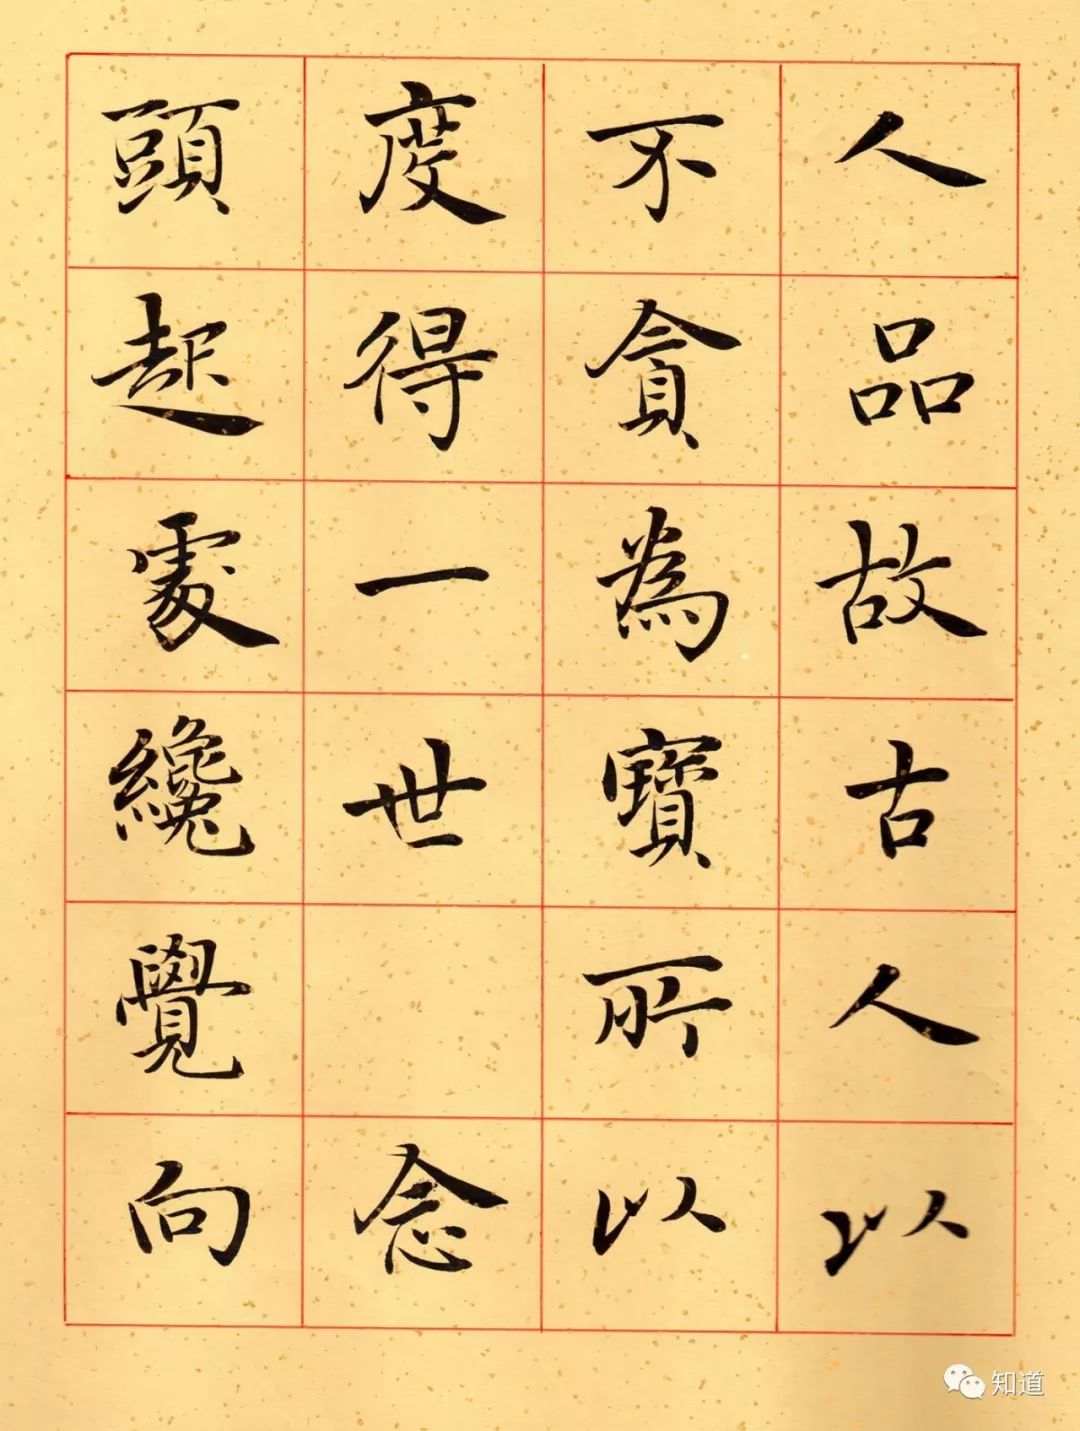 人品故古人以
不貪為寶所以
度得一世念
頭起處纔覺向
知道